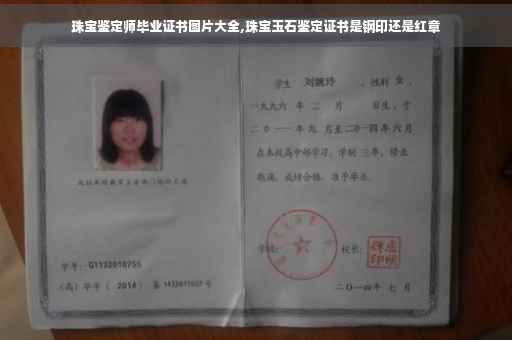 珠宝鉴定师毕业证书图片大全,珠宝玉石鉴定证书是钢印还是红章
学生 刘婉玲 ，性别 女 ，
一九九六 年 二 月 日生，于
二〇一一 年 九 月至 二〇一四 年 六 月
在本校高中部学习，学制 三 年，修业
期满，成绩合格，准予毕业。
学校： 校长：
学号： G1132010755
(高) 毕字 ( 2014 ) 第 1432011007 号
二〇一四年 七 月